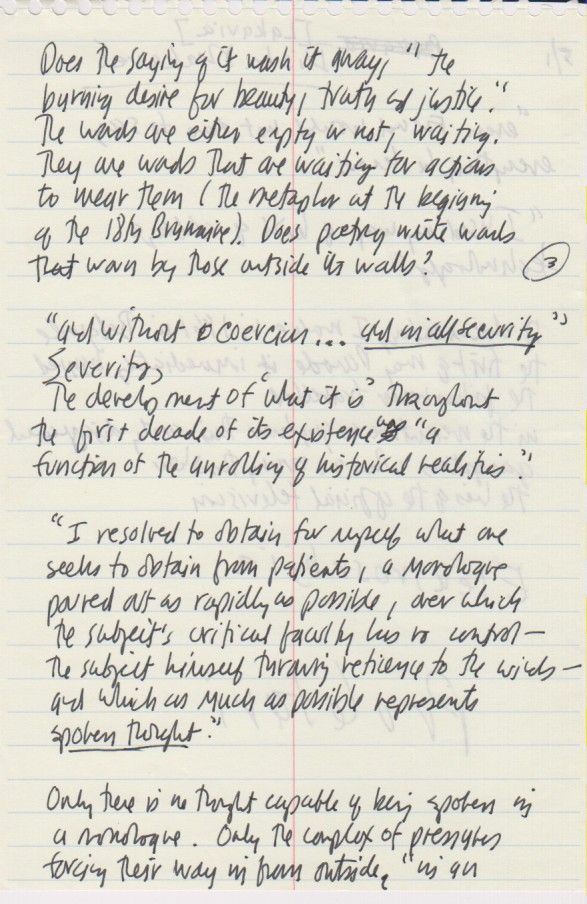 Does the saying of it wash it away, "the
burning desire for beauty, truth and justice."
The words are either empty or not, waiting.
They are words that are waiting for actions
to wear them (the metaphor at the beginning
of the 18th Brumaire). Does poetry write words
that worn by those outside its walls?
3
"and without coercion... and in all security"
Severity,
The development of "what it is" throughout
the first decade of its existence "a
function of the unrolling of historical realities."
"I resolved to obtain for myself what one
seeks to obtain from patients, a monologue
poured out as rapidly as possible, over which
the subject's critical faculty has no control—
the subject himself throwing reticence to the winds—
and which as much as possible represents
spoken thought."
Only there is no thought capable of being spoken in
a monologue. Only the complex of pressures
forcing their way in from outside, "in an